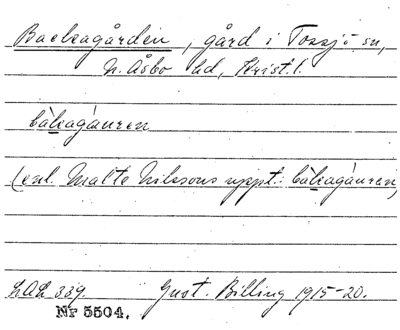 Backagården, gård i Tossjö sn,
N. Åsbo hd, Krist. l.
bàkagǻuren
(enl. Malte Nilssons uppt.: bàkagǻuren)
LAL 339. Gust. Billing 1915-20.
Nr 5504.